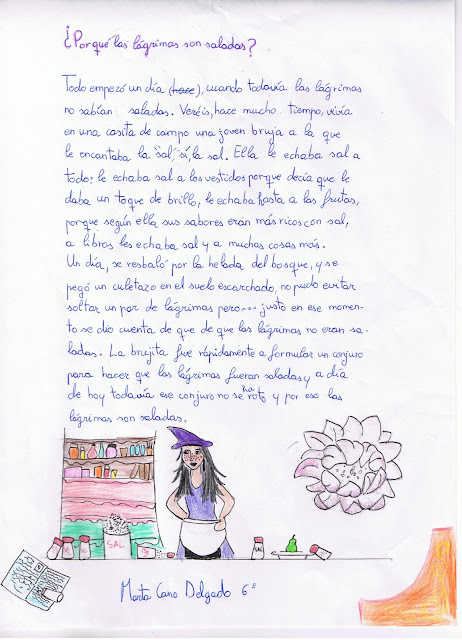 ¿Por qué las lágrimas son saladas?
Todo empezó un día (hace), cuando todavía las lágrimas
no sabían saladas. Veréis, hace mucho tiempo, vivía
en una casita de campo una joven bruja a la que
le encantaba la "sal", sí, la sal. Ella le echaba sal a
todo: le echaba sal a los vestidos porque decía que le
daba un toque de brillo, le echaba hasta a las frutas,
porque según ella sus sabores eran más ricos con sal,
a libros les echaba sal y a muchas cosas más.
Un día, se resbaló por la helada del bosque, y se
pegó un culetazo en el suelo escarchado, no pudo evitar
soltar un par de lágrimas pero... justo en ese momen-
to se dio cuenta de que de que las lágrimas no eran sa-
ladas. La brujita fue rápidamente a formular un conjuro
para hacer que las lágrimas fueran saladas y a día
de hoy todavía ese conjuro no se ha roto y por eso las
lágrimas son saladas.
SAL
SAL
Marta Cano Delgado 6º